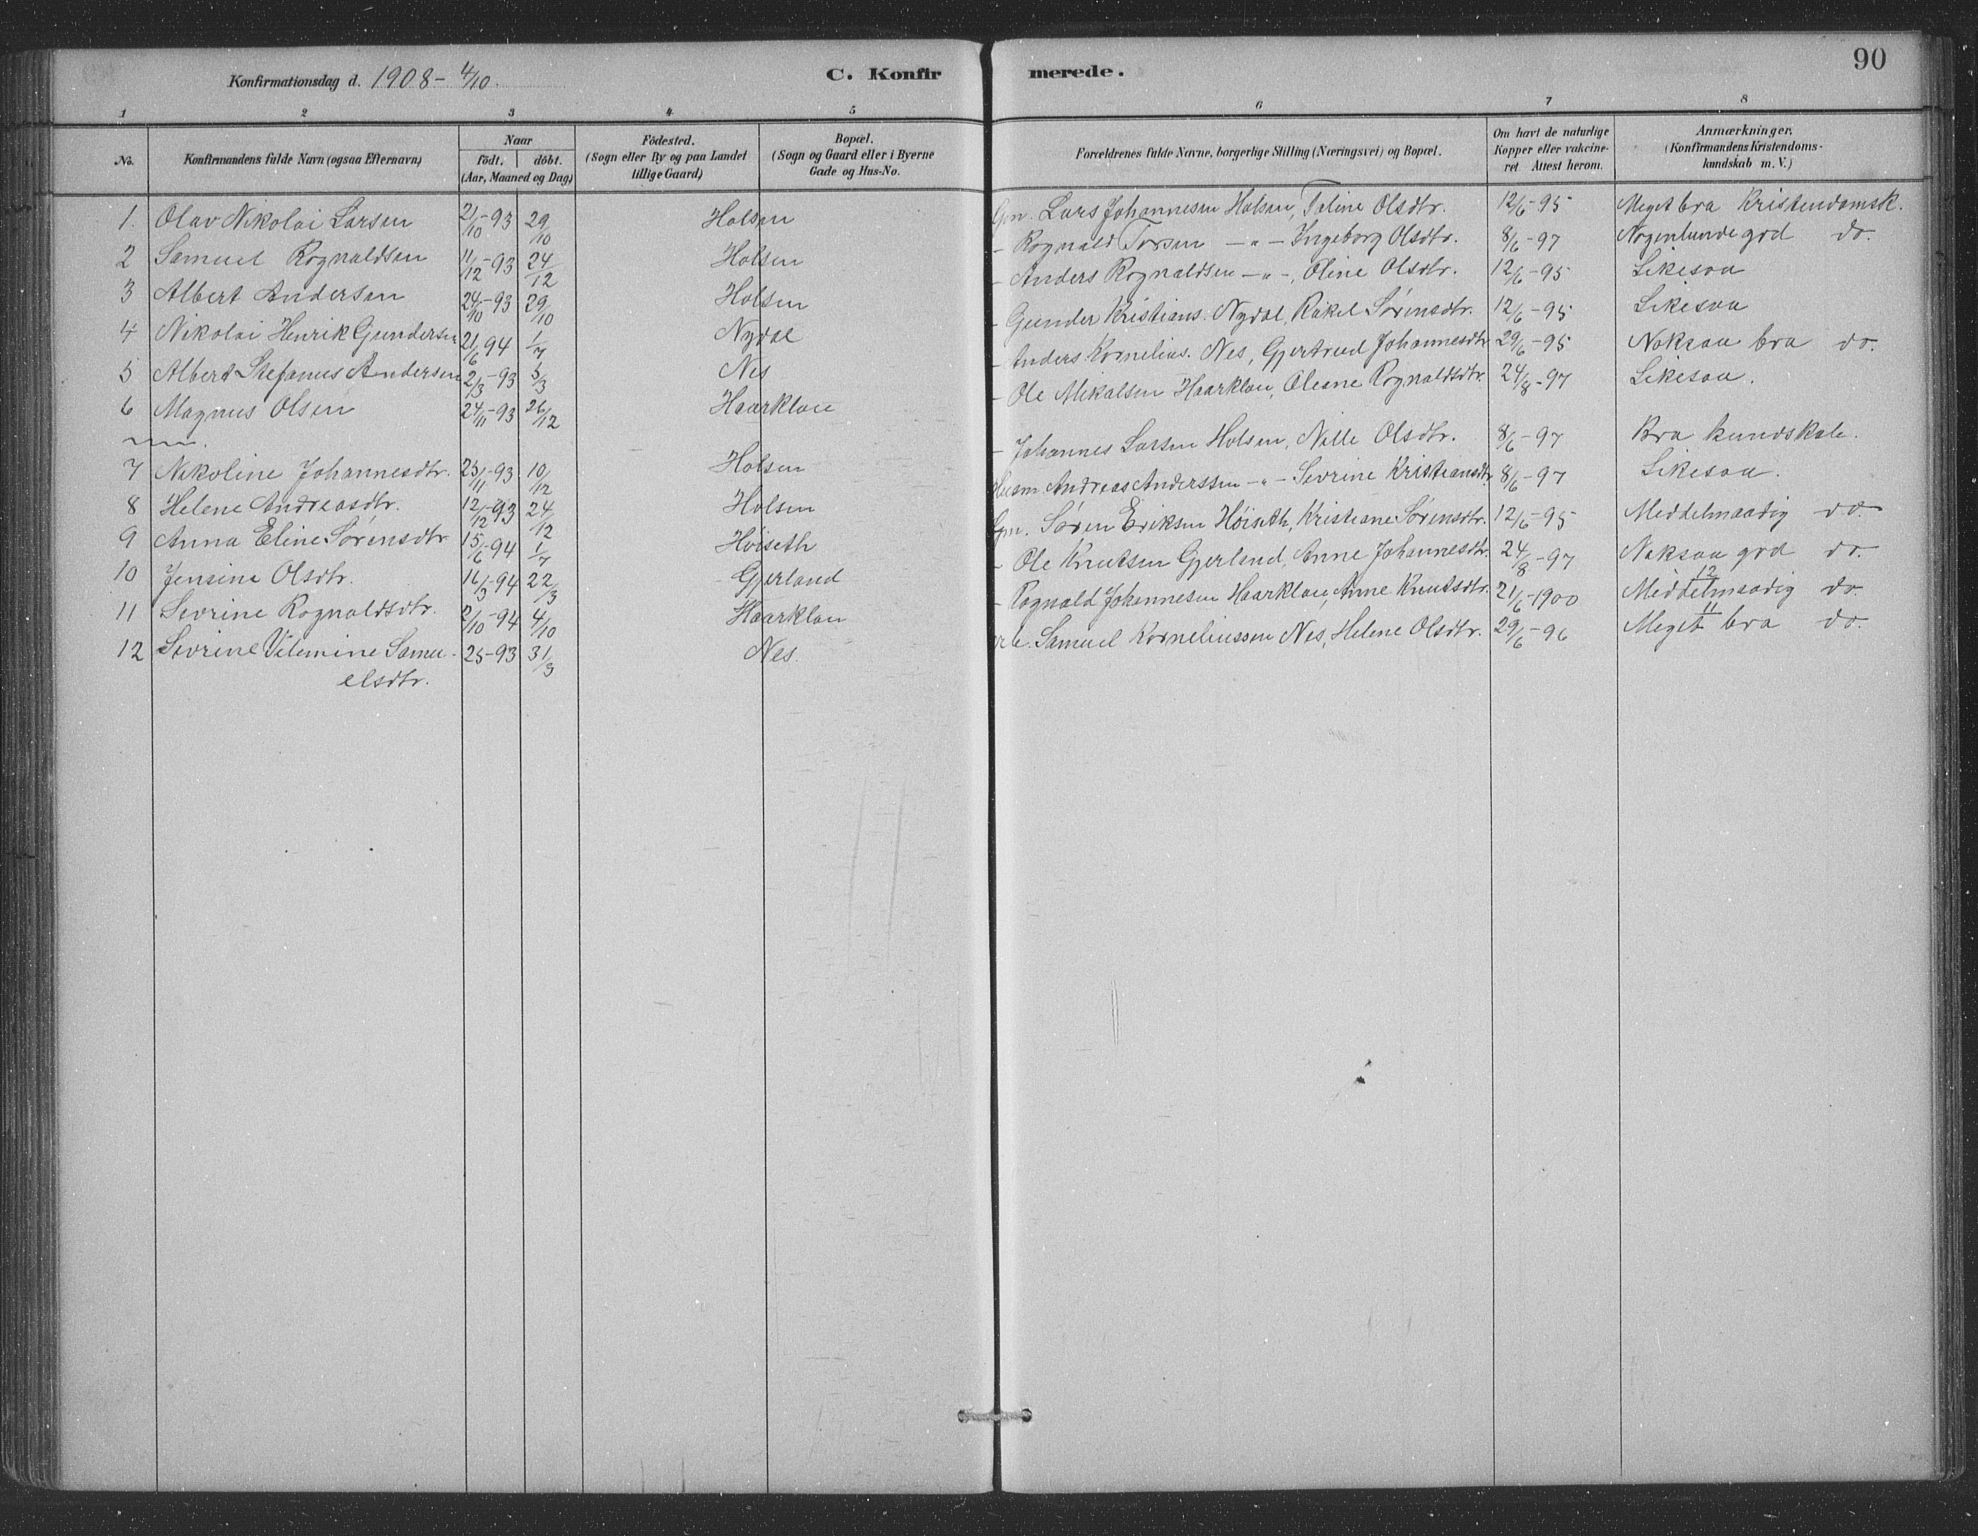 90
Konfirmationsdag d. 1908 - 4/10. C. Konfirmerede.
1 2 3 4 5 6 7 8
No. Konfirmandens fulde Navn (ogsaa Efternavn) Naar født, døbt. (Aar, Maaned og Dag) Födested. (Sogn eller By og paa Landet tillige Gaard) Bopæl. (Sogn og Gaard eller i Byerne Gade og Hus-No. Forældrenes fulde Navne, borgerlige Stilling (Næringsvei) og Bopæl. Om havt de naturlige Kopper eller vakcineret Attest herom. Anmærkninger. (Konfirmandens Kristendomskundskab m. V.)
1. Olav Nikolai Larsen 21/10-93 29/10 Holsen Gm. Lars Johannesen Holsen, Taline Olsdtr. 12/6-95 Meget bra Kristendomsk.
2 Samuel Rognaldsen 11/12-93 24/12 Holsen - Rognald Torsen -"- Ingeborg Olsdtr. 8/6-97 Nogenlunde god do.
3 Albert Andersen 24/10-93 29/10 Holsen - Anders Rognaldsen -"-, Oline Olsdtr. 12/6-95 Likesaa
4 Nikolai Henrik Gundersen 21/6 94 1/7 Nydal - Gunder Kristians. Nydal, Rakel Sørensdtr. 12/6-95 Likesaa
5 Albert Stefanus Andersen 2/3-93 5/3 Nes - Anders Kornelius. Nes, Gjertrud Johannesdtr 29/6-95 Noksaa bra do.
6 Magnus Olsen 24/11-93 26/12 Haarklau - Ole Mikalsen Haarklau, Olesne Rognaldsdtr. 24/8-97 Likesaa.
7 Nikoline Johannesdtr. 25/11-93 10/12 Holsen - Johannes Larsen Holsen, Nille Olsdtr. 8/6-97 Bra kundskab.
8 Helene Andreasdtr. 12/12-93 24/12 Holsen Husm Andreas Anderssen -"- Sevrine Kristiansdtr. 8/6-97 Likesaa.
9 Anna Eline Sørensdtr 15/6-94 1/7 Høiseth Gm. Søren Eriksen Høiseth, Kristiane Sørensdtr. 12/6-95 Middelmaadig do.
10 Jensine Olsdtr. 16/3-94 22/3 Gjerland - Ole Knutsen Gjerland, Anne Johannesdtr. 24/8-97 Noksaa god do.
11 Sevrine Rognaldsdtr. 2/10-94 4/10 Haarklau - Rognald Johannesen Haarklau, Anne Knutsdtr. 21/6-1900 12 Middelmaadig do.
12 Sevrine Vilemine Samu- 25-93 31/3 Nes. Samuel Korneliussen Nes, Helene Olsdtr. 29/6-96 11 Meget bra do.
elsdtr.